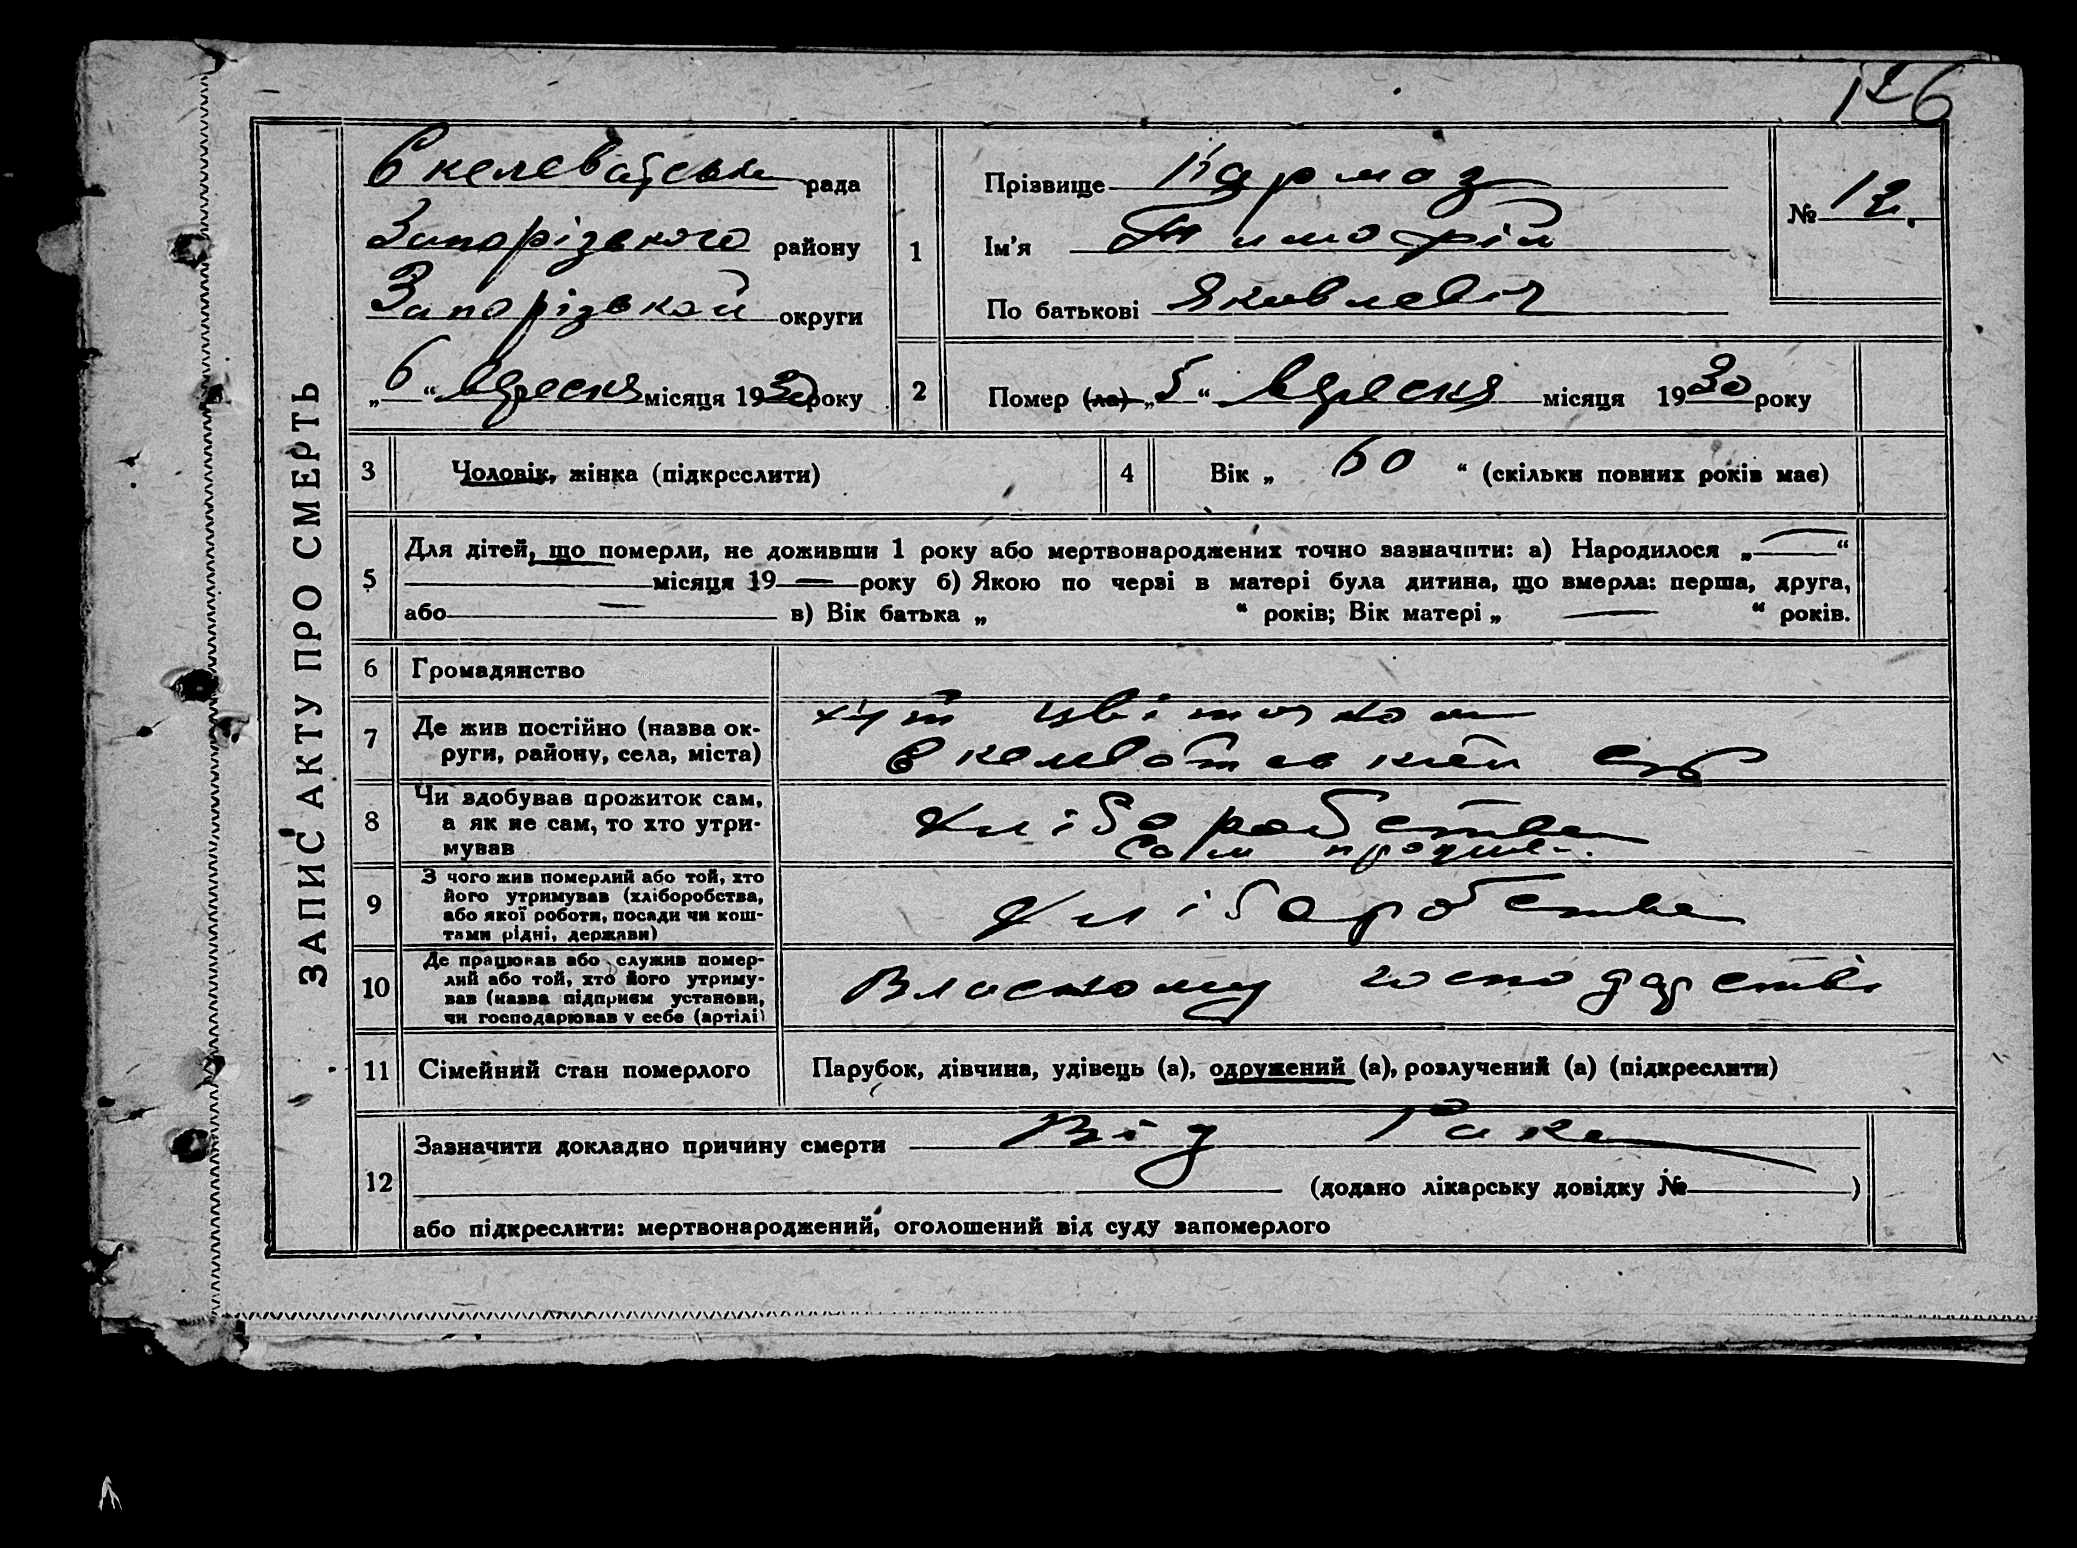 126
ЗАПИС АКТУ ПРО СМЕРТЬ
Скелеватська рада
Запорізького району
Запорізькой округи
„6“ вересня місяця 1930 року
1
Прізвище Кармаз
Ім'я Тимофій
По батькові Яковлевіч
№ 12.
2
Помер (ла) „5“ вересня місяця 1930 року
3
Чоловік, жінка (підкреслити)
4
Вік „ 60 “ (скільки повних років має)
5
Для дітей, що померли, не доживши 1 року або мертвонароджених точно зазначити: а) Народилося „ — “
місяця 19 — року б) Якою по черзі в матері була дитина, що вмерла: перша, друга,
або — в) Вік батька „ “ років; Вік матері „ — “ років.
6
Громадянство
7
Де жив постійно (назва ок-
руги, району, села, міста)
хут
Скелеватській с/р
8
Чи здобував прожиток сам,
а як не сам, то хто утри-
мував
Хліборобства
сам
9
З чого жив померлий або той, хто
його утримував (хліборобства,
або якої роботи, посади чи кош-
тами рідні, держави)
Хліборобства
10
Де працював або служив помер-
лий або той, хто його утриму-
вав (назва підприєм установи,
чи господарював у себе (артілі)
Власному господарстві
11
Сімейний стан померлого
Парубок, дівчина, удівець (а), одружений (а), розлучений (а) (підкреслити)
12
Зазначити докладно причину смерти Від Рака
(додано лікарську довідку № )
або підкреслити: мертвонароджений, оголошений від суду запомерлого